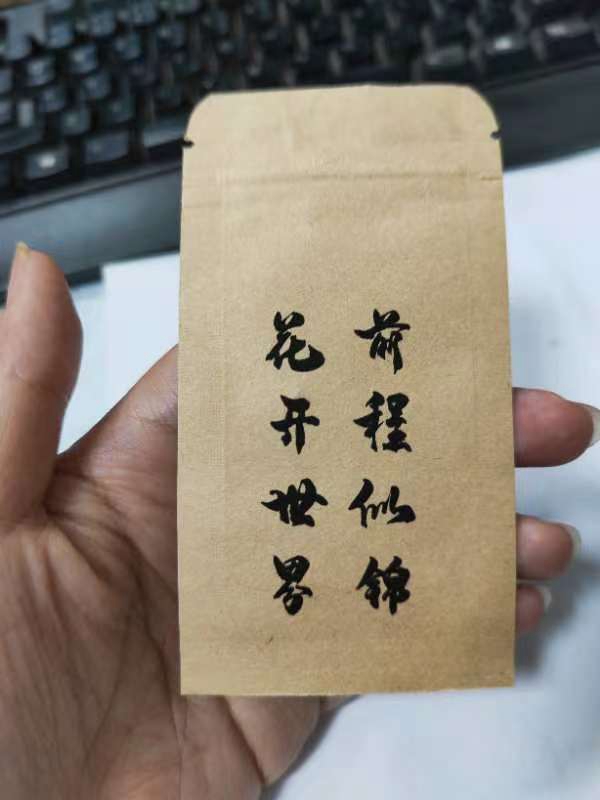 前程似锦
花开世界